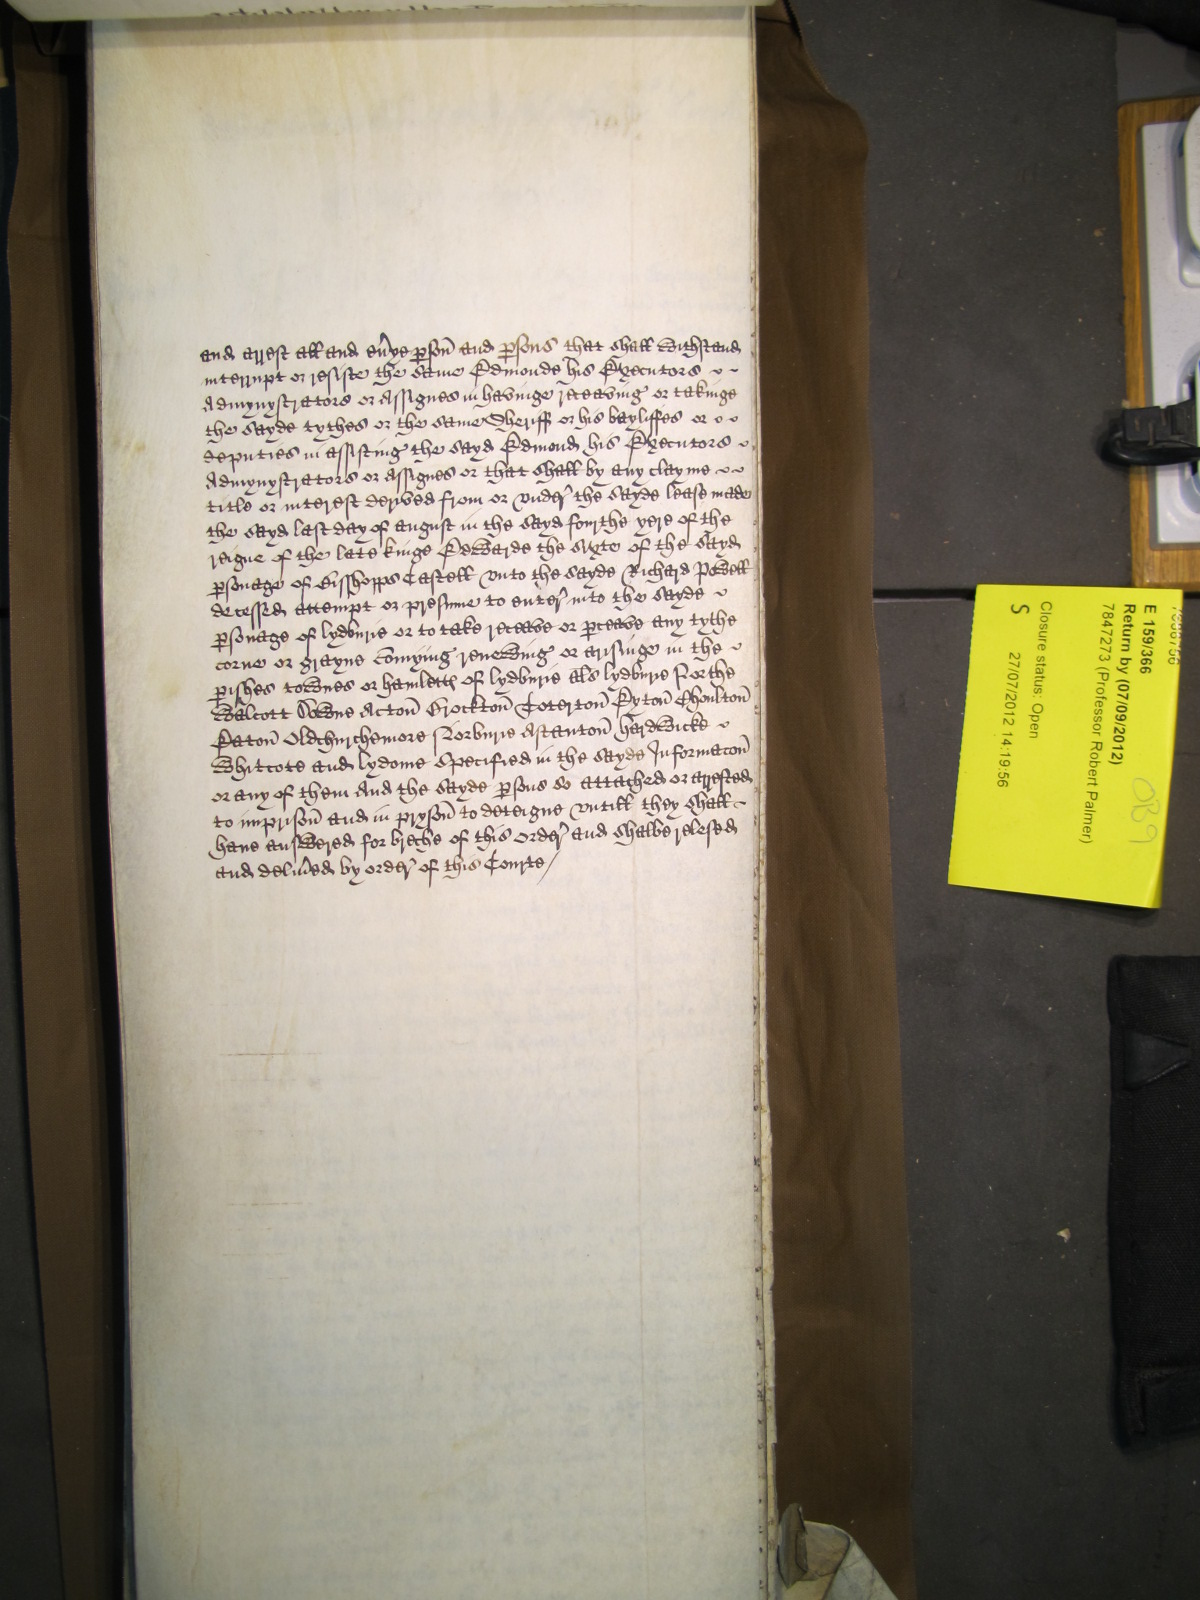 and arrest all and eu'ye p'son and p'sons that shall withstand
interrupt or resiste the same Edmonde his Executors
Admynystrators or Assignes in havinge receaving or takinge
the sayde tythes or the same Sheriff or his bayliffes or
deputies in assisting the sayd Edmond his Executors
Admynystrators or assignes or that shall by any clayme
title or interest derived from or under the sayde lease made
the sayd last day of august in the sayd fourthe yere of the
reigne of the late kinge Edwarde the Sixte of the sayd
p'sonage of Bisshopps Castell unto the sayde Richard Powell
decessed attempt or presume to enter into the sayde
p'sonage of lydburie or to take receave or p'ceave any tythe
corne or grayne comying renewing or arisinge in the
p'ishes townes or hamlette of lydburie als lydburie Northe
Walcott Acton Brockton Coterton Eyton Choulton
Eaton Oldchurchemore Norburie Astanton hardwicke
Whitcote and lydome Specified in the sayde Informacon
or any of them And the sayde p'sons so attached or arrested
to imprison and in pryson to deteigne untill they shall
have answered for breche of this order and shalbe relesed
and deliu'ed by order of this Courte/
E 159/366
Return by (07/09/2012)
7847273 (Professor Robert Palmer)
Closure status: Open
27/07/2012 14:19:56
S